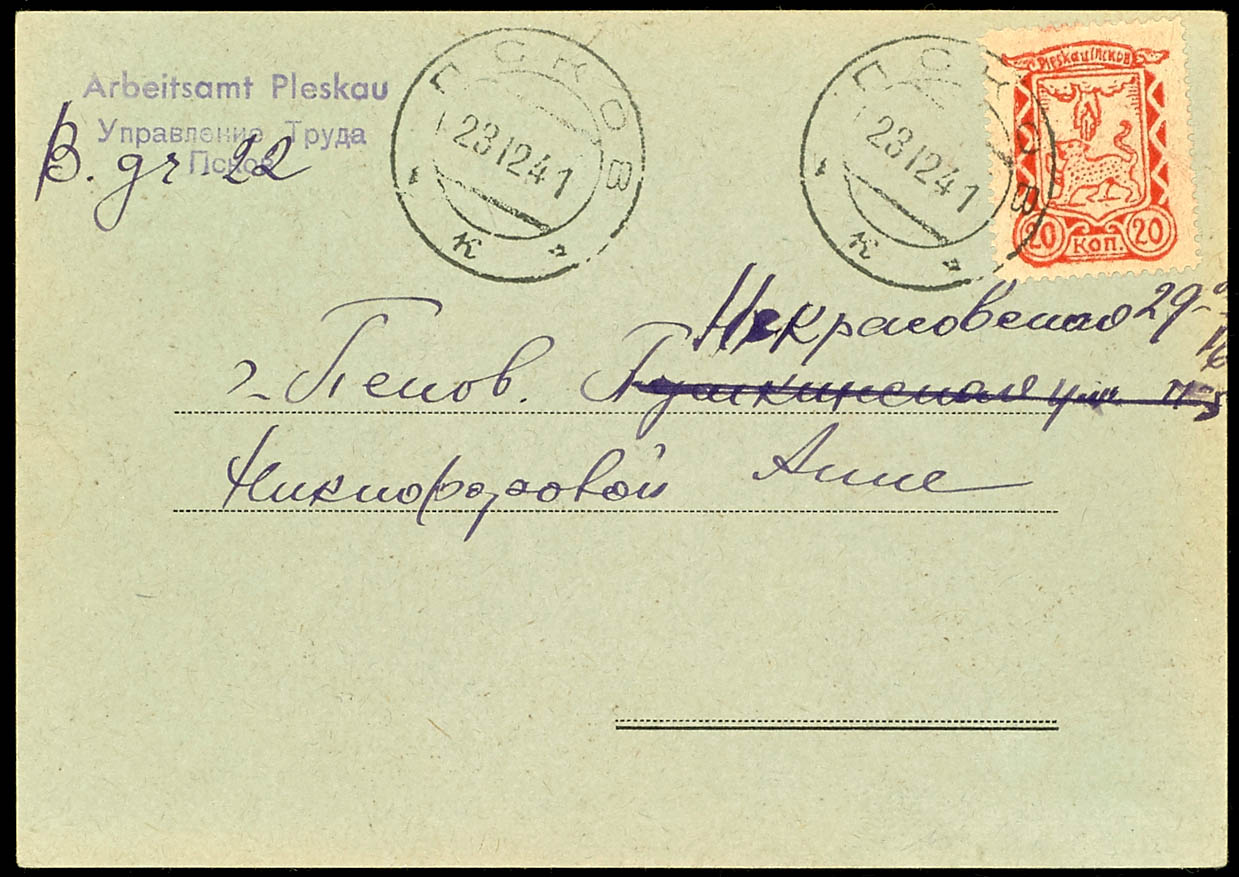 Arbeitsamt Pleskau
Управление Труда
Псков
B. gr 22
ПСКОВ
23 12 41
к
ПСКОВ
23 12 41
к
Pleskau Псков
20 КОП. 20
Некрасовская 29-
г. Псков. Пушкинская ул.
Никифоровой Анне